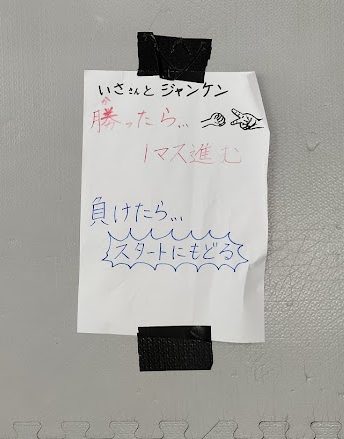 いささんと ジャンケン
勝ったら...
1マス進む
負けたら...
スタートにもどる